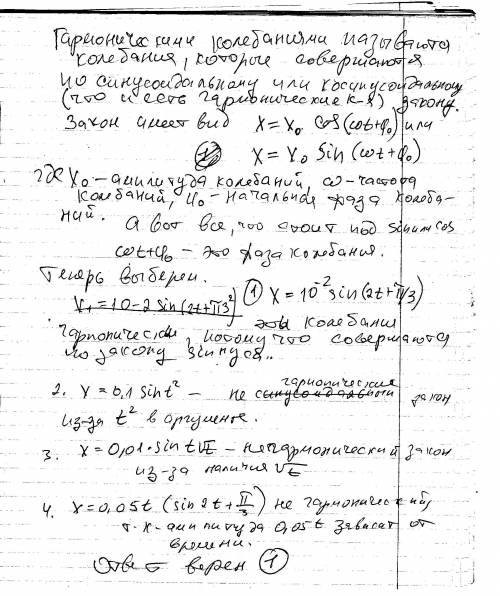 Гармоническими колебаниями называются
колебания, которые совершаются
по синусоидальному или косинусоидальному
(что и есть гармонические к-я) закону.
Закон имеет вид x = x₀ cos(ωt+φ₀) или
x = x₀ sin(ωt+φ₀)
где x₀ - амплитуда колебаний, ω - частота
колебаний, φ₀ - начальная фаза колеба-
ний. А вот все, что стоит под sin или cos
ωt+φ₀ - это фаза колебания.
Теперь выберем.
① x = 10⁻² sin(2t+π/3)
эти колебания
гармонически, потому что совершаются
по закону синуса..
2. x = 0,1 sin t² - не гармонические закон
из-за t² в аргументе.
3. x = 0,01·sin t√t - негармонический закон
из-за наличия √t
4. x = 0,05t (sin 2t + π/3) не гармонический,
т.к. амплитуда 0,05t зависит от
времени.
Ответ верен ①